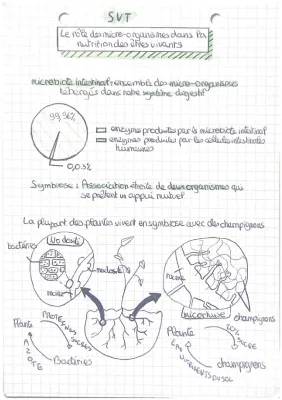 SVT
Le rôle des micro-organismes dans la
nutrition des êtres vivants
microbiote intestinal : ensemble des micro-organismes
hébergés dans notre système digestif
99,96%
enzymes produites par le microbiote intestinal
enzymes produites par les cellules intestinales
humaines
0,03%
Symbiose : Association étroite de deux organismes qui
se prêtent un appui mutuel
La plupart des plantes vivent en symbiose avec des champignons
bactéries
Nodosité
nodosité
racine
racine
champignons
mycorhize
Plante
PROTEINES
SUCRES
AZOTE
Bactéries
Plante
SUCRE
EAU
NUTRIMENTS DU SOL
champignons